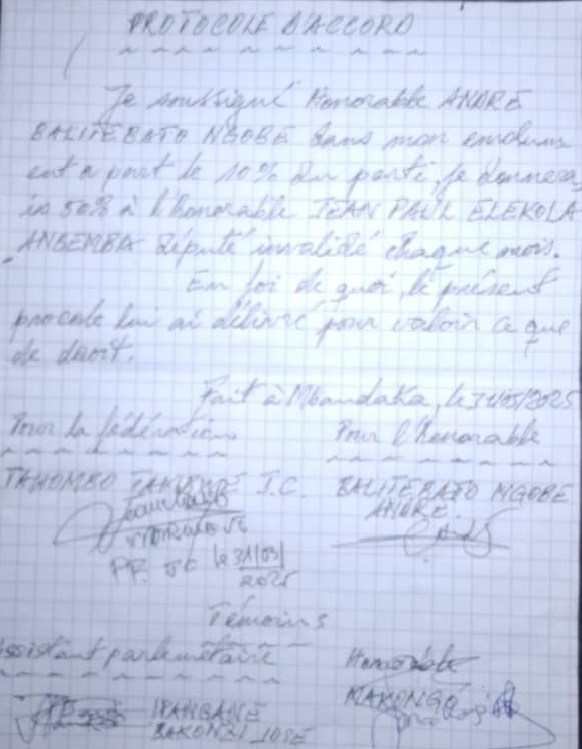 PROTOCOLE D'ACCORD
Je soussigné Honorable ANDRÉ
BALITEBATO NGOBE dans mon
ent a part le 10% du parti, je donnera
is 50% à l'honorable JEAN PAUL ELEKOLA
ANGEMBA député invalidé chaque mois.
En foi de quoi, le présent
procole lui ai délivré pour valoir ce que
de droit.
Fait à Mbandaka, le 31/05/2025
Pour la fédération
Pour l'Honorable
TAHOMBO J.C.
BALITEBATO NGOBE
ANDRÉ
PR. le 31/05/
2025
Témoins
assistant parlemetaire
Honorable
IPANGANE
MAKONGO
BAKONZI JOSE